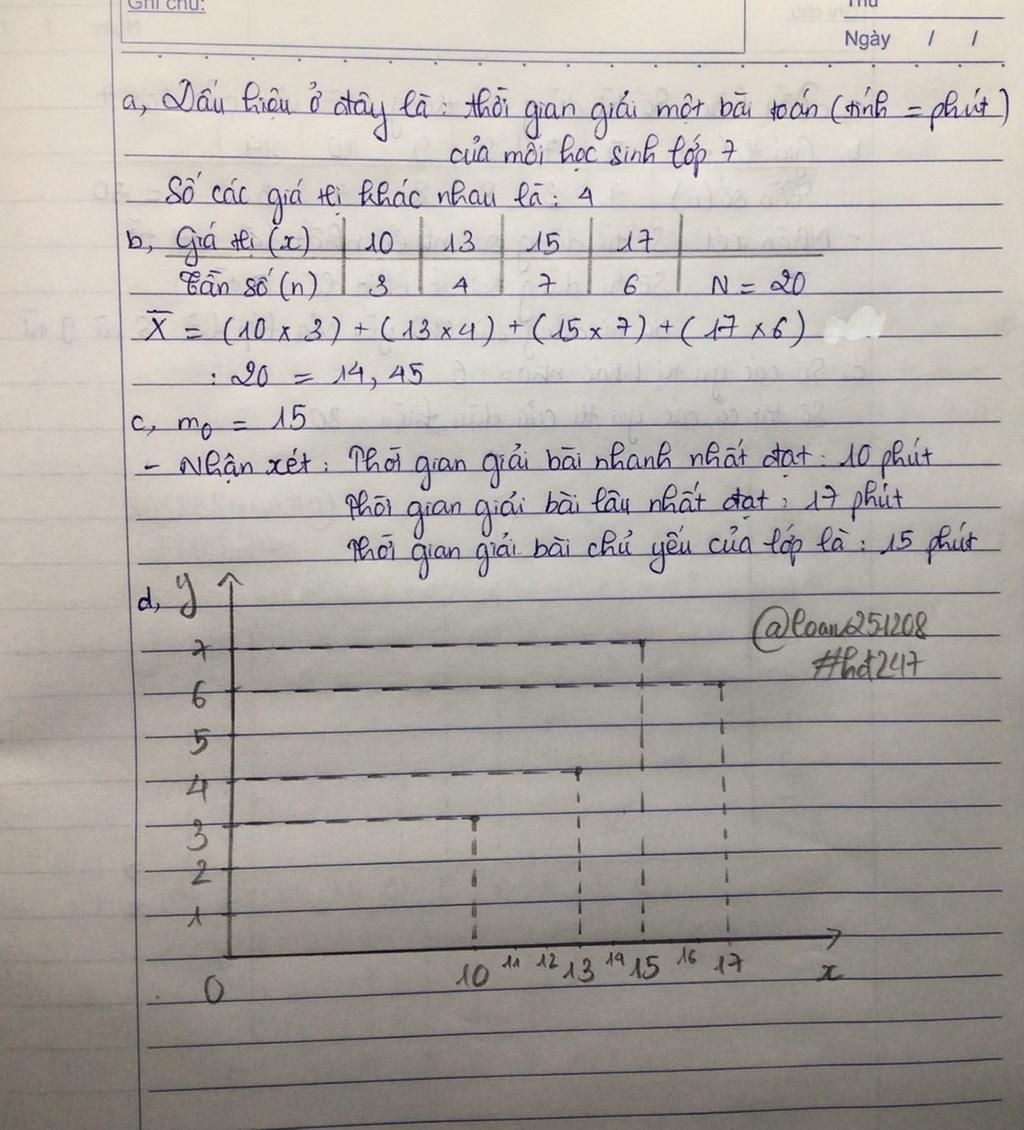 Ghi chú:
Thứ
Ngày / /
a, Dấu hiệu ở đây là : thời gian giải một bài toán (tính = phút)
của mỗi học sinh lớp 7
Số các giá trị khác nhau là : 4
b, Giá trị (x) 10 13 15 17
Tần số (n) 3 4 7 6 N = 20
X̄ = (10 x 3) + (13 x 4) + (15 x 7) + (17 x 6)
: 20 = 14,45
c, m₀ = 15
- Nhận xét : Thời gian giải bài nhanh nhất đạt : 10 phút
Thời gian giải bài lâu nhất đạt : 17 phút
Thời gian giải bài chủ yếu của lớp là : 15 phút
d, y
@loan251208
#hd247
7
6
5
4
3
2
1
0
10 11 12 13 14 15 16 17 x